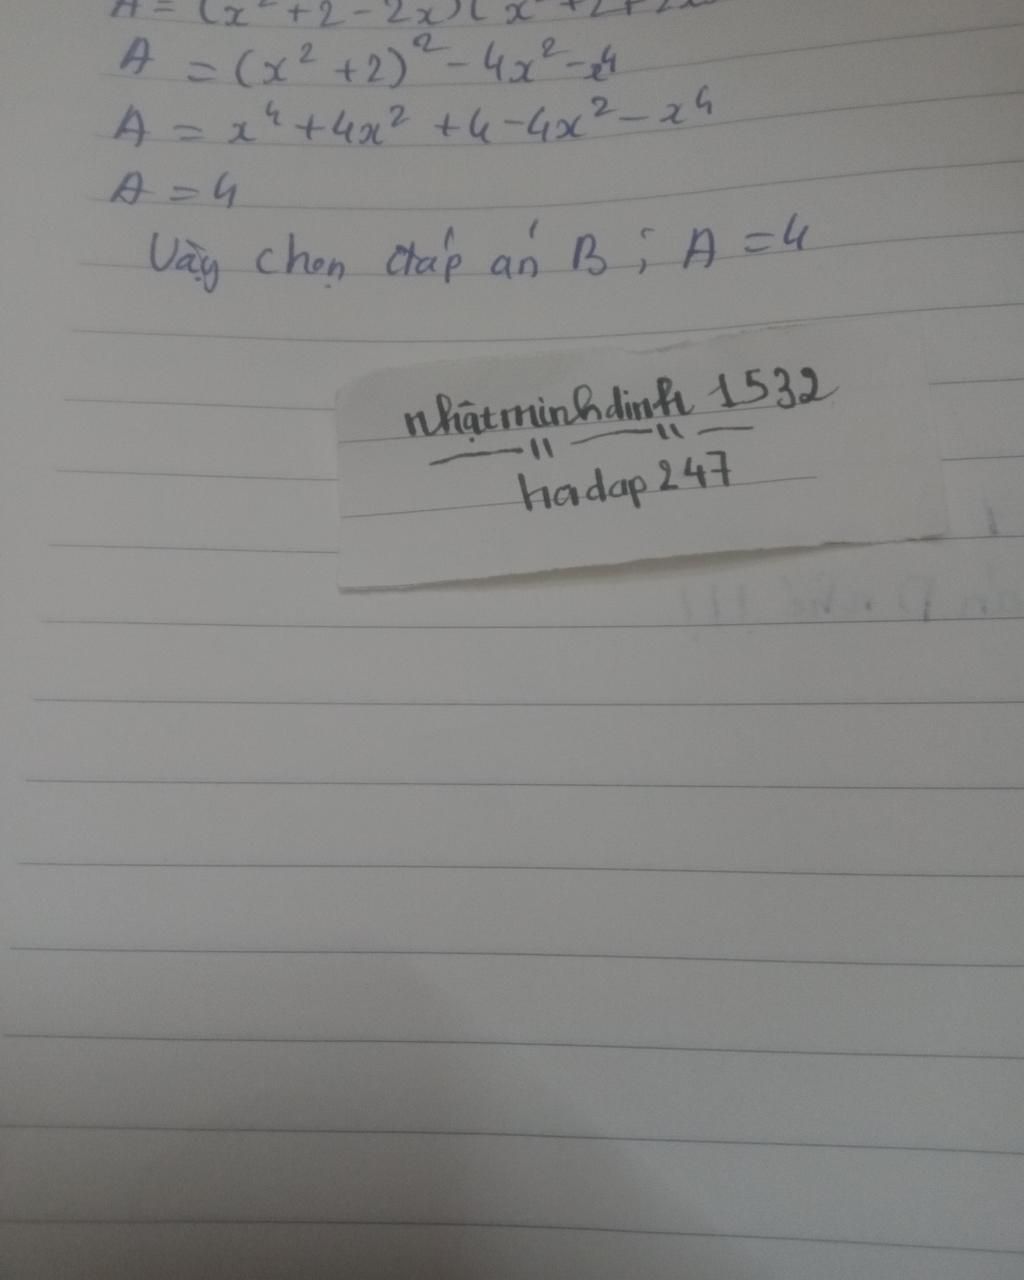 A = (x² + 2 - 2x)(x² + 2 + 2x
A = (x² + 2)² - 4x² - x⁴
A = x⁴ + 4x² + 4 - 4x² - x⁴
A = 4
Vậy chọn đáp án B ; A = 4
nhậtminhdinh 1532
hadap 247